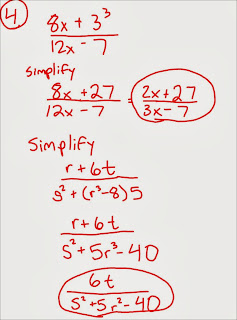 ④ 8x + 3³
12x - 7
Simplify
8x + 27 = 2x + 27
12x - 7 3x - 7
Simplify
r + 6t
s² + (r³-8)5
r + 6t
s² + 5r³ - 40
6t
s² + 5r² - 40